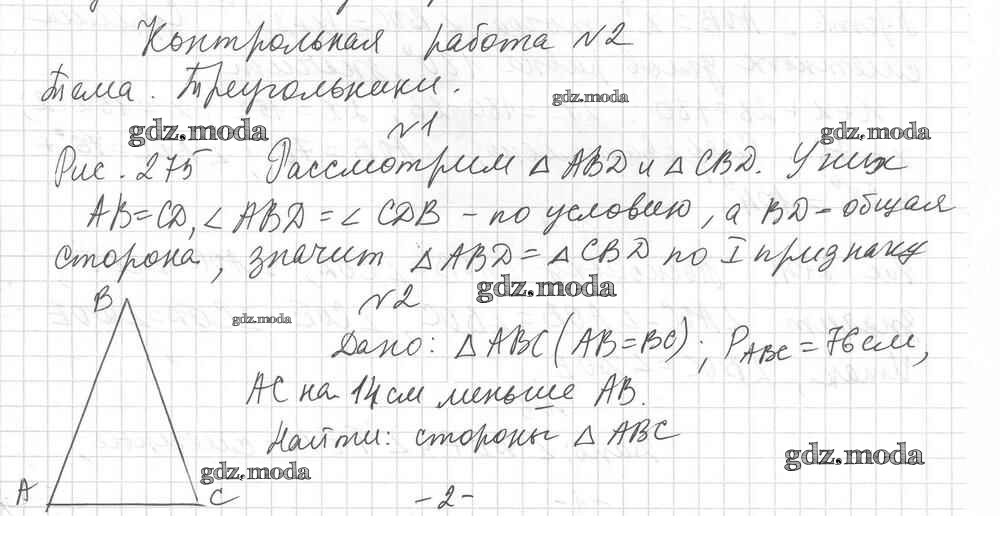 Контрольная работа №2
Тема. Треугольники.
gdz.moda
gdz.moda
№1
gdz.moda
Рис. 275 Рассмотрим △ ABD и △ CBD. У них
AB=CD, ∠ ABD = ∠ CDB – по условию, а BD – общая
сторона, значит △ ABD = △ CBD по I признаку
gdz.moda
№2
B
gdz.moda
Дано: △ ABC (AB=BC); P_ABC = 76 см,
AC на 14 см меньше AB.
Найти: стороны △ ABC
gdz.moda
gdz.moda
A C
-2-